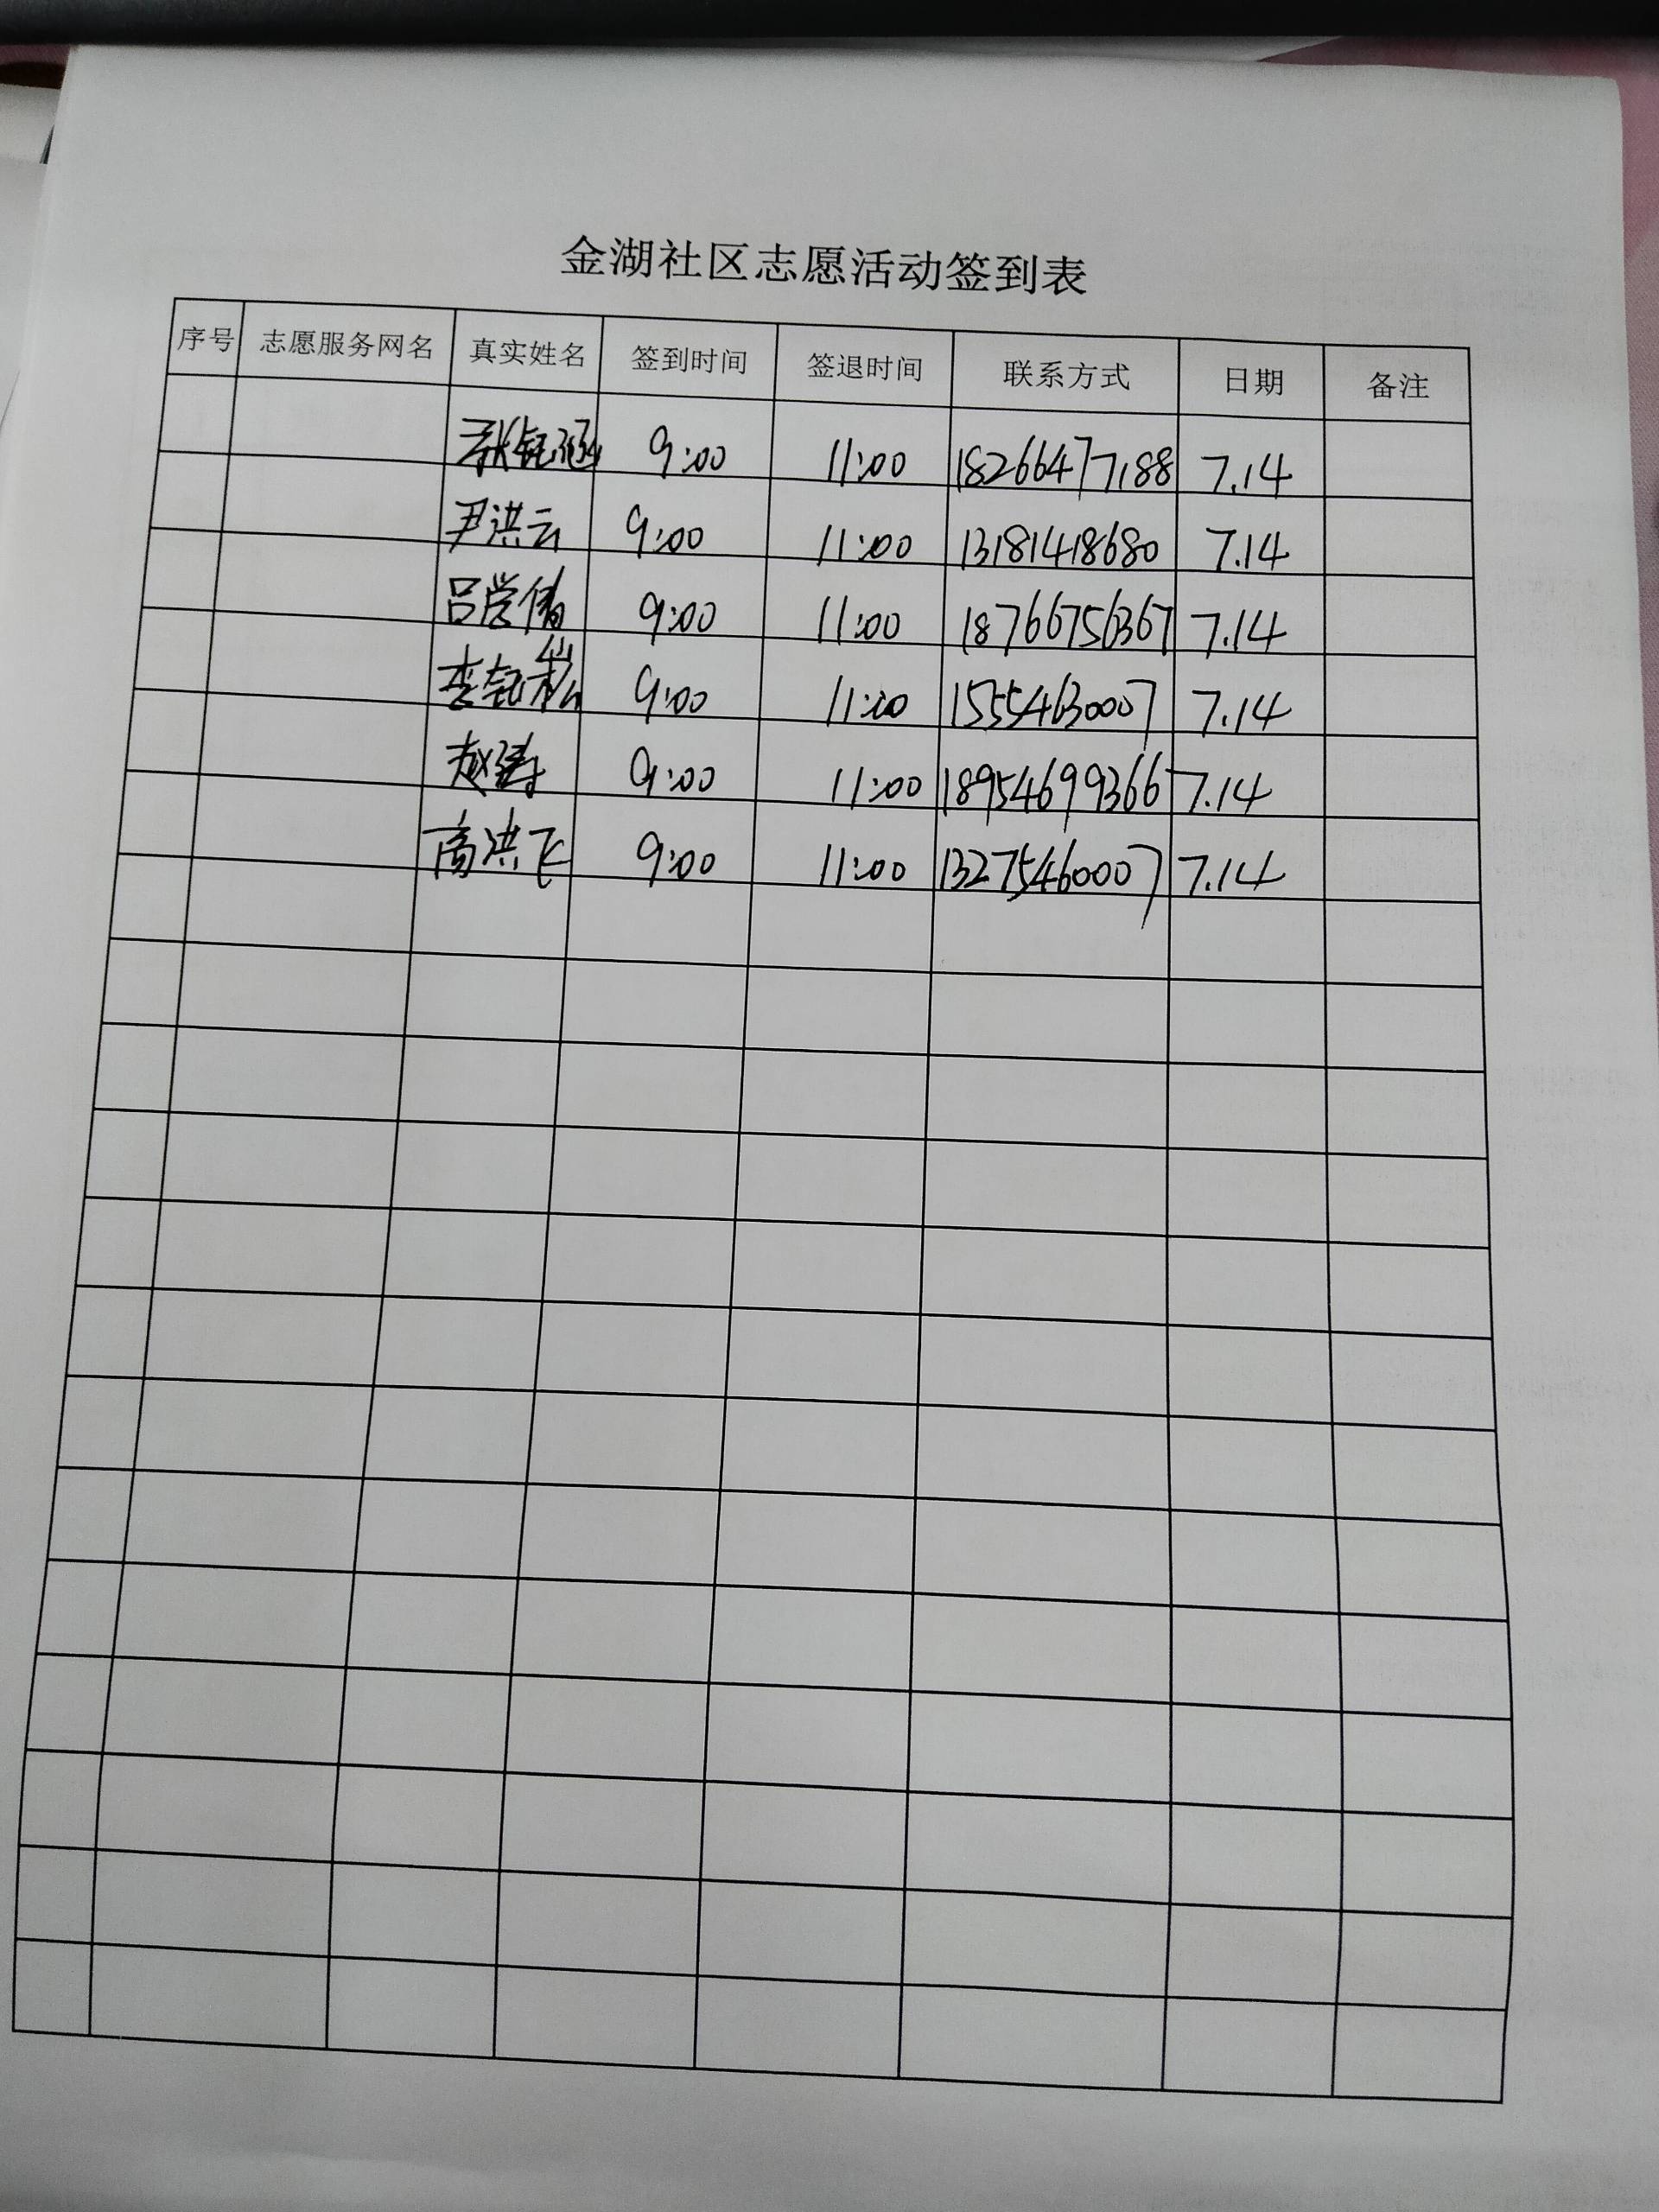 金湖社区志愿活动签到表
序号 志愿服务网名 真实姓名 签到时间 签退时间 联系方式 日期 备注
9:00 11:00 18266477188 7.14
尹洪云 9:00 11:00 13181418680 7.14
吕学倩 9:00 11:00 18766756367 7.14
李钰崧 9:00 11:00 15554630007 7.14
赵涛 9:00 11:00 18954699366 7.14
商洪飞 9:00 11:00 13275460007 7.14